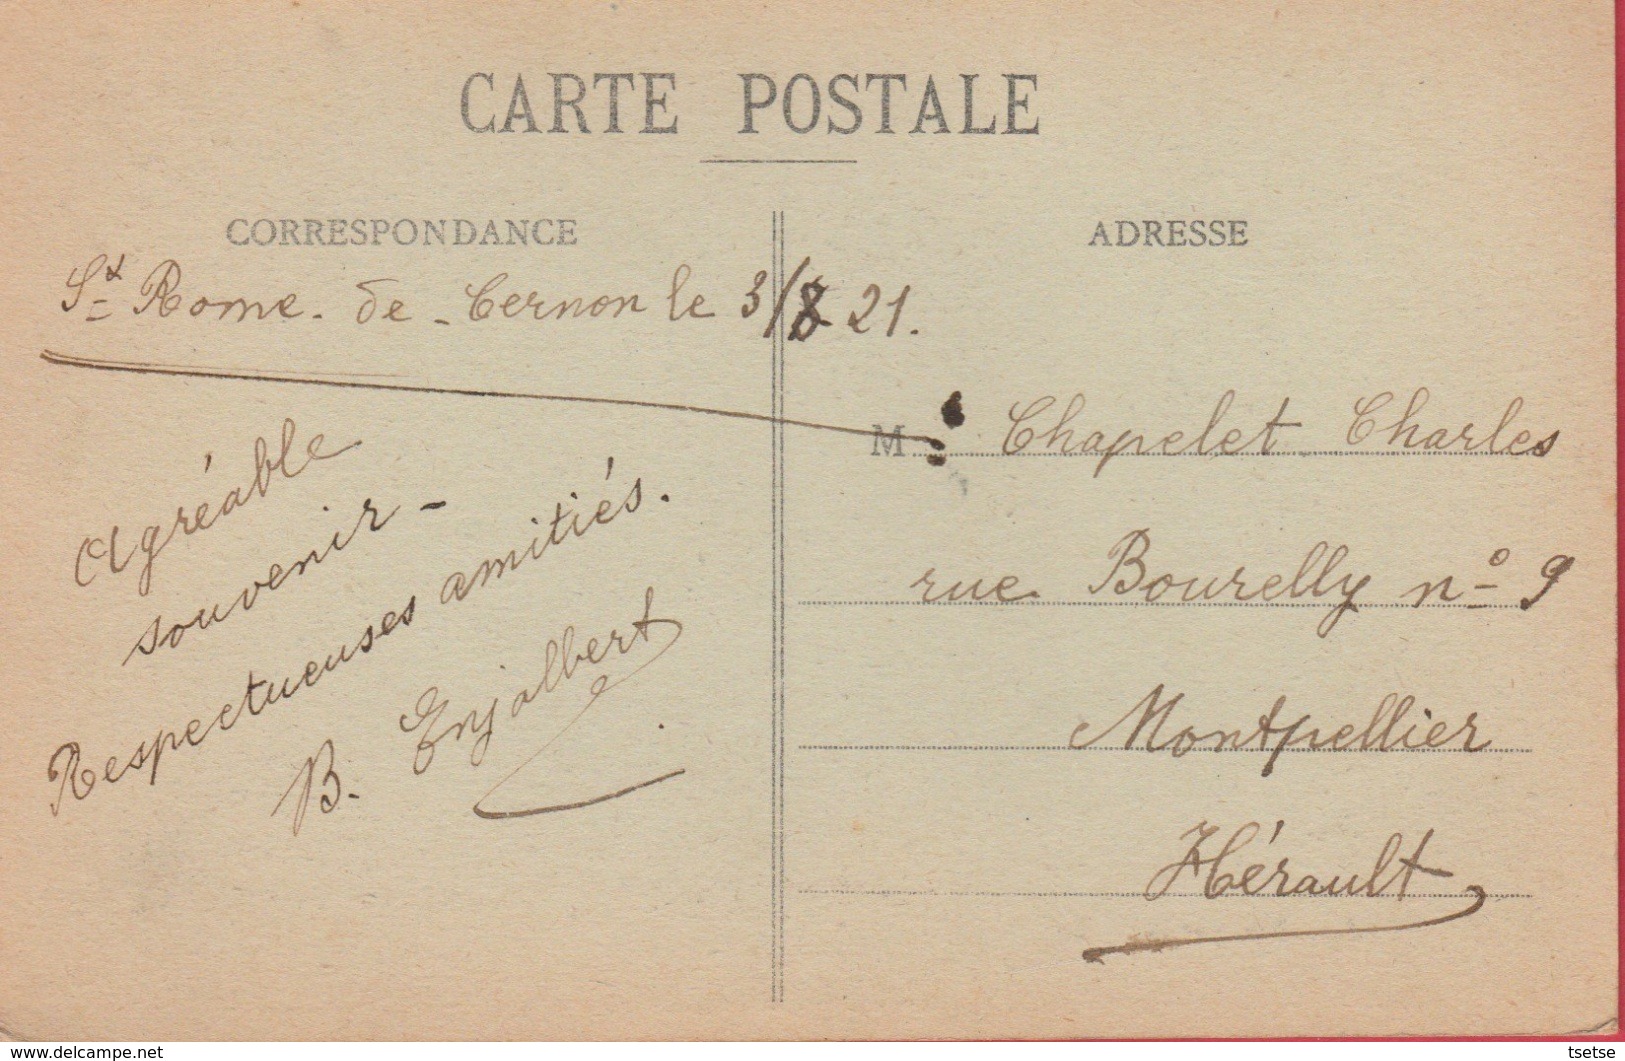 CARTE POSTALE
CORRESPONDANCE
St Rome. de - Cernon le 3/8 21.
Agréable
souvenir -
Respectueuses amitiés.
B. Enjalbert
ADRESSE
M Chapelet Charles
rue Bourelly n° 9
Montpellier
Hérault
www.delcampe.net
tsetse